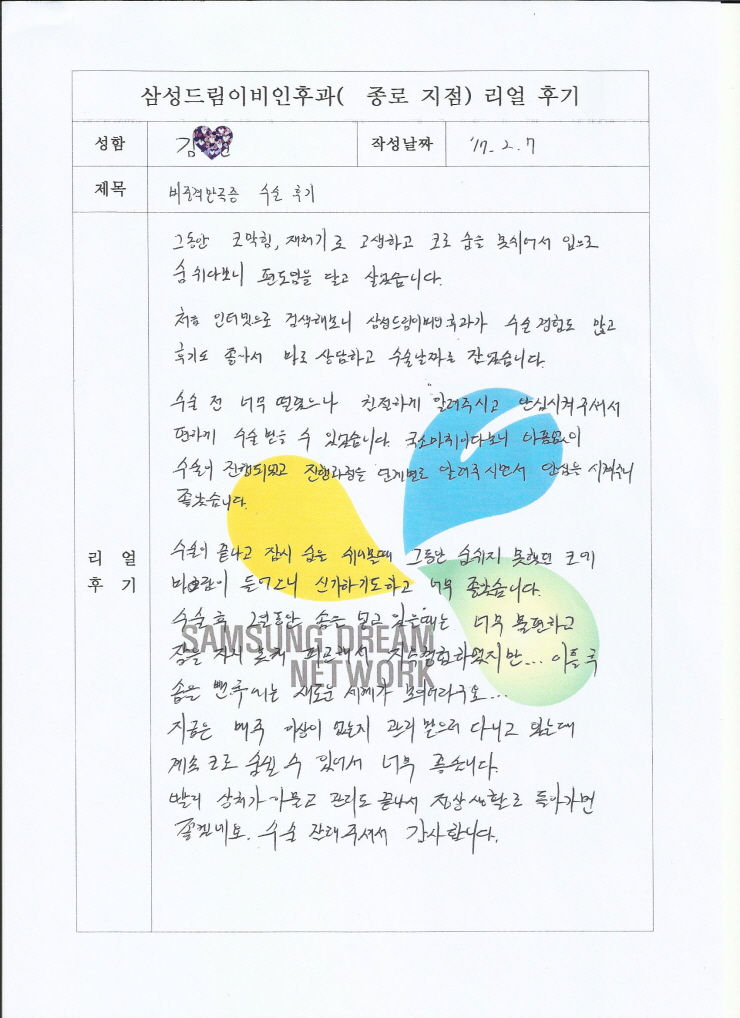 삼성드림이비인후과( 종로 지점) 리얼 후기
성함 김
작성날짜 '17. 2. 7
제목 비중격만곡증 수술 후기
리 얼
후 기
그동안 코막힘, 재채기로 고생하고 코로 숨을 못쉬어서 입으로
숨 쉬다보니 편도염을 달고 살았습니다.
처음 인터넷으로 검색해보니 삼성드림이비인후과가 수술경험도 많고
후기도 좋아서 바로 상담하고 수술날짜를 잡았습니다.
수술 전 너무 떨렸으나 친절하게 알려주시고 안심시켜주셔서
편하게 수술 받을 수 있었습니다. 국소마취이다보니 아픔없이
수술이 진행되었고 진행과정을 단계별로 알려주시면서 안심을 시켜주니
좋았습니다.
수술이 끝나고 잠시 숨을 쉬어볼때 그동안 숨쉬지 못했던 코에
바람이 들어오니 신기하기도하고 너무 좋았습니다.
수술 후 2일동안 솜을 넣고 있을때는 너무 불편하고
잠을 자지 못해 피곤해서 하였지만... 이틀 후
솜을 뺀 후에는 새로운 세계가 보이더라구요...
지금은 매주 이상이 없는지 관리 받으러 다니고 있는데
계속 코로 숨쉴 수 있어서 너무 좋습니다.
빨리 상처가 아물고 관리도 끝나서 정상생활로 돌아가면
좋겠네요. 수술 잘해주셔서 감사합니다.
SAMSUNG DREAM
NETWORK